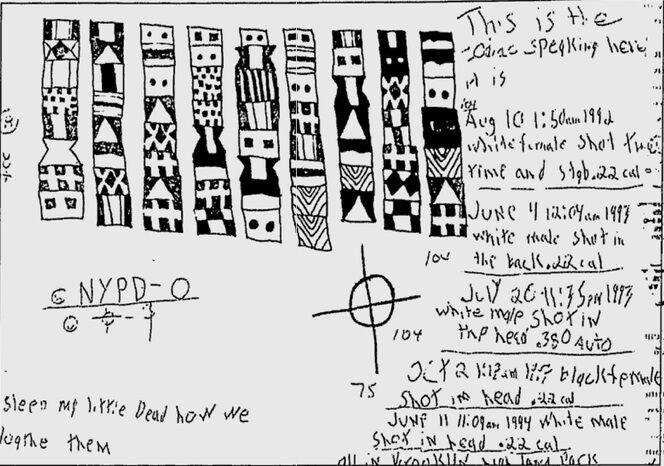 This is the
speaking here
it is
Aug 10 1:50am 1992
white female shot
time and stab .22 cal
JUNE 4 12:04am 1993
white male shot in
the back .22 cal
104
JULY 20 11:35pm 1993
white male shot in
the head .380 AUTO
104
OCT 2 black female
75
shot in head .22 cal
JUNE 11 11:09am 1994 white male
shot in head .22 cal
all in
NYPD-0
sleep my little Dead how we
them